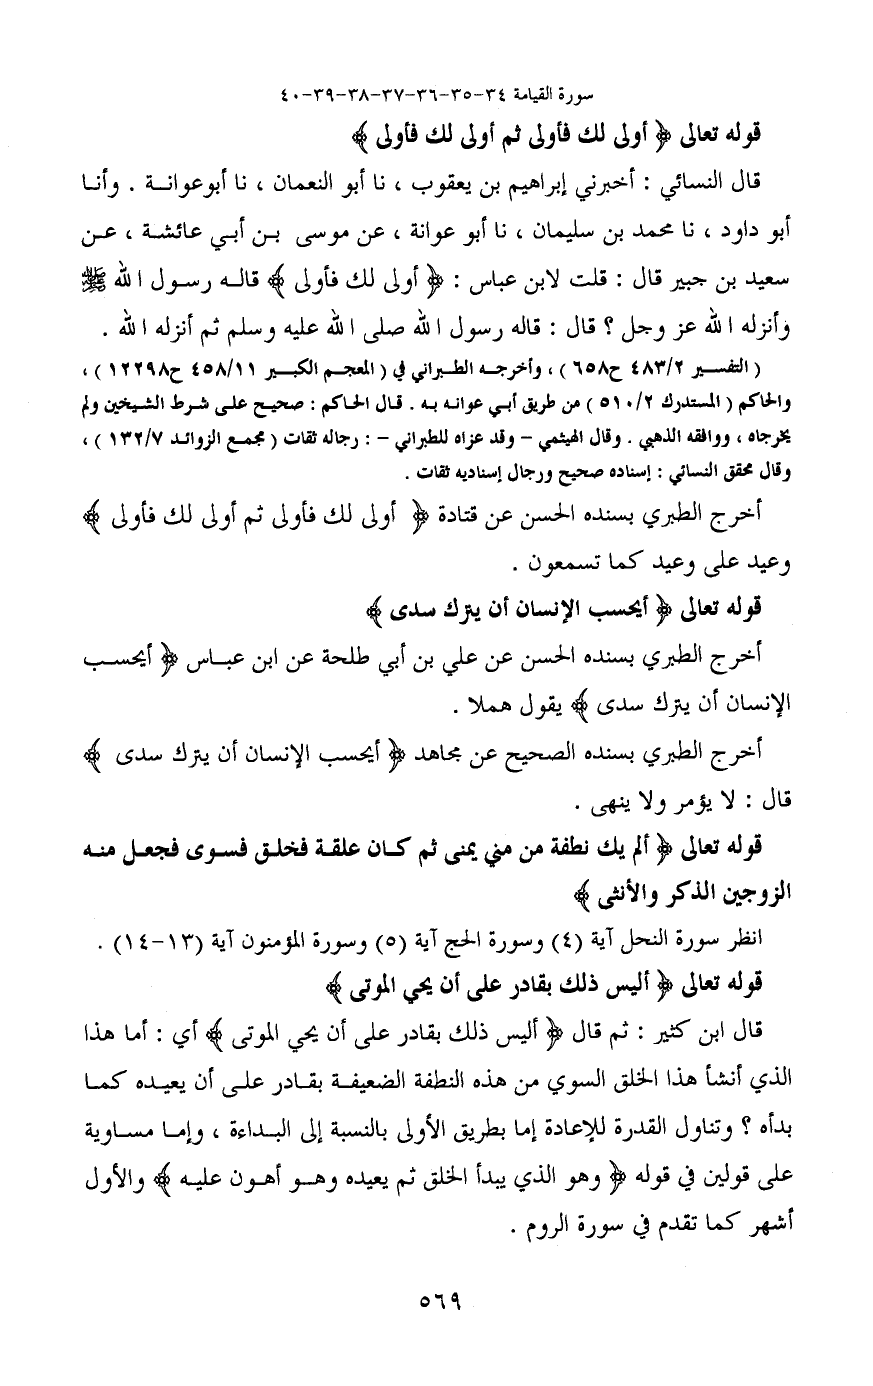 سورة القيامة ٣٤-٣٥-٣٦-٣٧-٣٨-٣٩-٤٠
قوله تعالى ﴿ أولى لك فأولى ثم أولى لك فأولى ﴾
قال النسائي : أخبرني إبراهيم بن يعقوب ، نا أبو النعمان ، نا أبوعوانة . وأنا
أبو داود ، نا محمد بن سليمان ، نا أبو عوانة ، عن موسى بن أبي عائشة ، عن
سعيد بن جبير قال : قلت لابن عباس : ﴿ أولى لك فأولى ﴾ قاله رسول الله ﷺ
وأنزله الله عز وجل ؟ قال : قاله رسول الله صلى الله عليه وسلم ثم أنزله الله .
( التفسير ٤٨٣/٢ ح٦٥٨ ) ، وأخرجه الطبراني في ( المعجم الكبير ٤٥٨/١١ ح١٢٢٩٨ ) ،
والحاكم ( المستدرك ٥١٠/٢ ) من طريق أبي عوانه به . قال الحاكم : صحيح على شرط الشيخين ولم
يخرجاه ، ووافقه الذهبي . وقال الهيثمي - وقد عزاه للطبراني - : رجاله ثقات ( مجمع الزوائد ١٣٢/٧ ) ،
وقال محقق النسائي : إسناده صحيح ورجال إسناديه ثقات .
أخرج الطبري بسنده الحسن عن قتادة ﴿ أولى لك فأولى ثم أولى لك فأولى ﴾
وعيد على وعيد كما تسمعون .
قوله تعالى ﴿ أيحسب الإنسان أن يترك سدى ﴾
أخرج الطبري بسنده الحسن عن علي بن أبي طلحة عن ابن عباس ﴿ أيحسب
الإنسان أن يترك سدى ﴾ يقول هملا .
أخرج الطبري بسنده الصحيح عن مجاهد ﴿ أيحسب الإنسان أن يترك سدى ﴾
قال : لا يؤمر ولا ينهى .
قوله تعالى ﴿ ألم يك نطفة من مني يمنى ثم كان علقة فخلق فسوى فجعل منه
الزوجين الذكر والأنثى ﴾
انظر سورة النحل آية (٤) وسورة الحج آية (٥) وسورة المؤمنون آية (١٣-١٤) .
قوله تعالى ﴿ أليس ذلك بقادر على أن يحي الموتى ﴾
قال ابن كثير : ثم قال ﴿ أليس ذلك بقادر على أن يحي الموتى ﴾ أي : أما هذا
الذي أنشأ هذا الخلق السوي من هذه النطفة الضعيفة بقادر على أن يعيده كما
بدأه ؟ وتناول القدرة للإعادة إما بطريق الأولى بالنسبة إلى البداءة ، وإما مساوية
على قولين في قوله ﴿ وهو الذي يبدأ الخلق ثم يعيده وهو أهون عليه ﴾ والأول
أشهر كما تقدم في سورة الروم .
٥٦٩